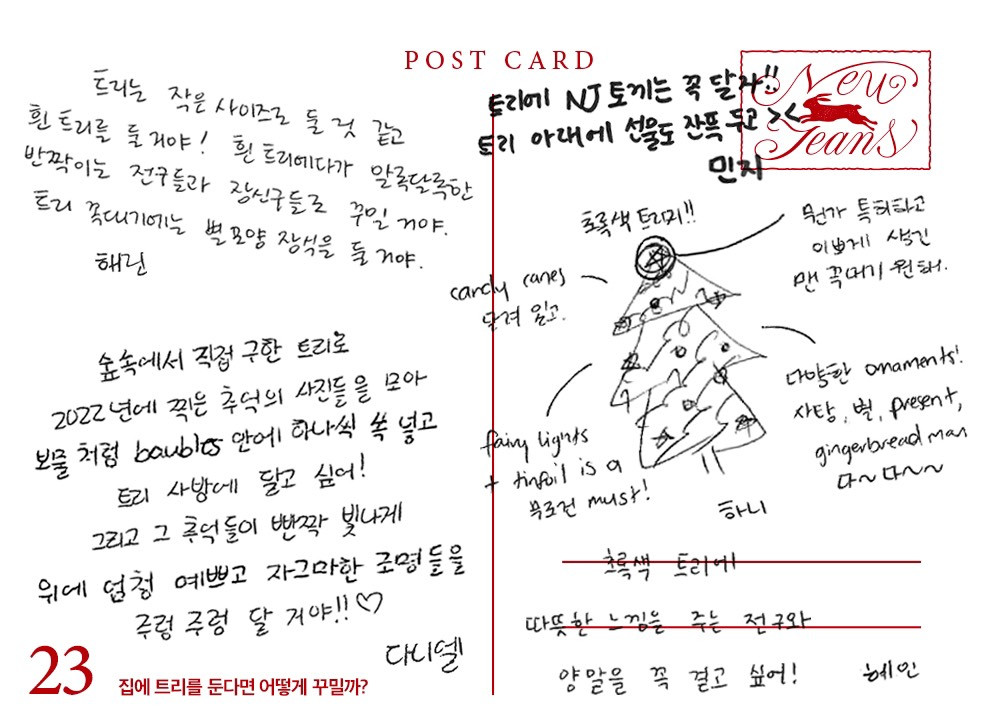 POST CARD
New
Jeans
트리는 작은 사이즈로 둘 것 같고
흰 트리를 둘 거야! 흰 트리에다가 알록달록한
반짝이는 전구들과 장신구들로 꾸밀 거야.
트리 꼭대기에는 별모양 장식을 둘 거야.
해린
숲속에서 직접 구한 트리로
2022년에 찍은 추억의 사진들을 모아
보물처럼 baubles 안에 하나씩 쏙 넣고
트리 사방에 달고 싶어!
그리고 그 추억들이 반짝 빛나게
위에 엄청 예쁘고 자그마한 조명들을
주렁 주렁 달 거야!!♡
다니엘
트리에 NJ 토끼는 꼭 달자!!
트리 아래에 선물도 잔뜩 두고 ><
민지
초록색 트리지!!
뭔가 특허하고
이쁘게 생긴
맨 꼭머기 원해.
candy canes
달려 있고.
다양한 ornaments!
사탕, 별, present,
gingerbread man
다~다~~
fairy lights
+ tinfoil is a
무조건 must!
하니
초록색 트리에
따뜻한 느낌을 주는 전구와
양말을 꼭 걸고 싶어! 혜인
23 집에 트리를 둔다면 어떻게 꾸밀까?